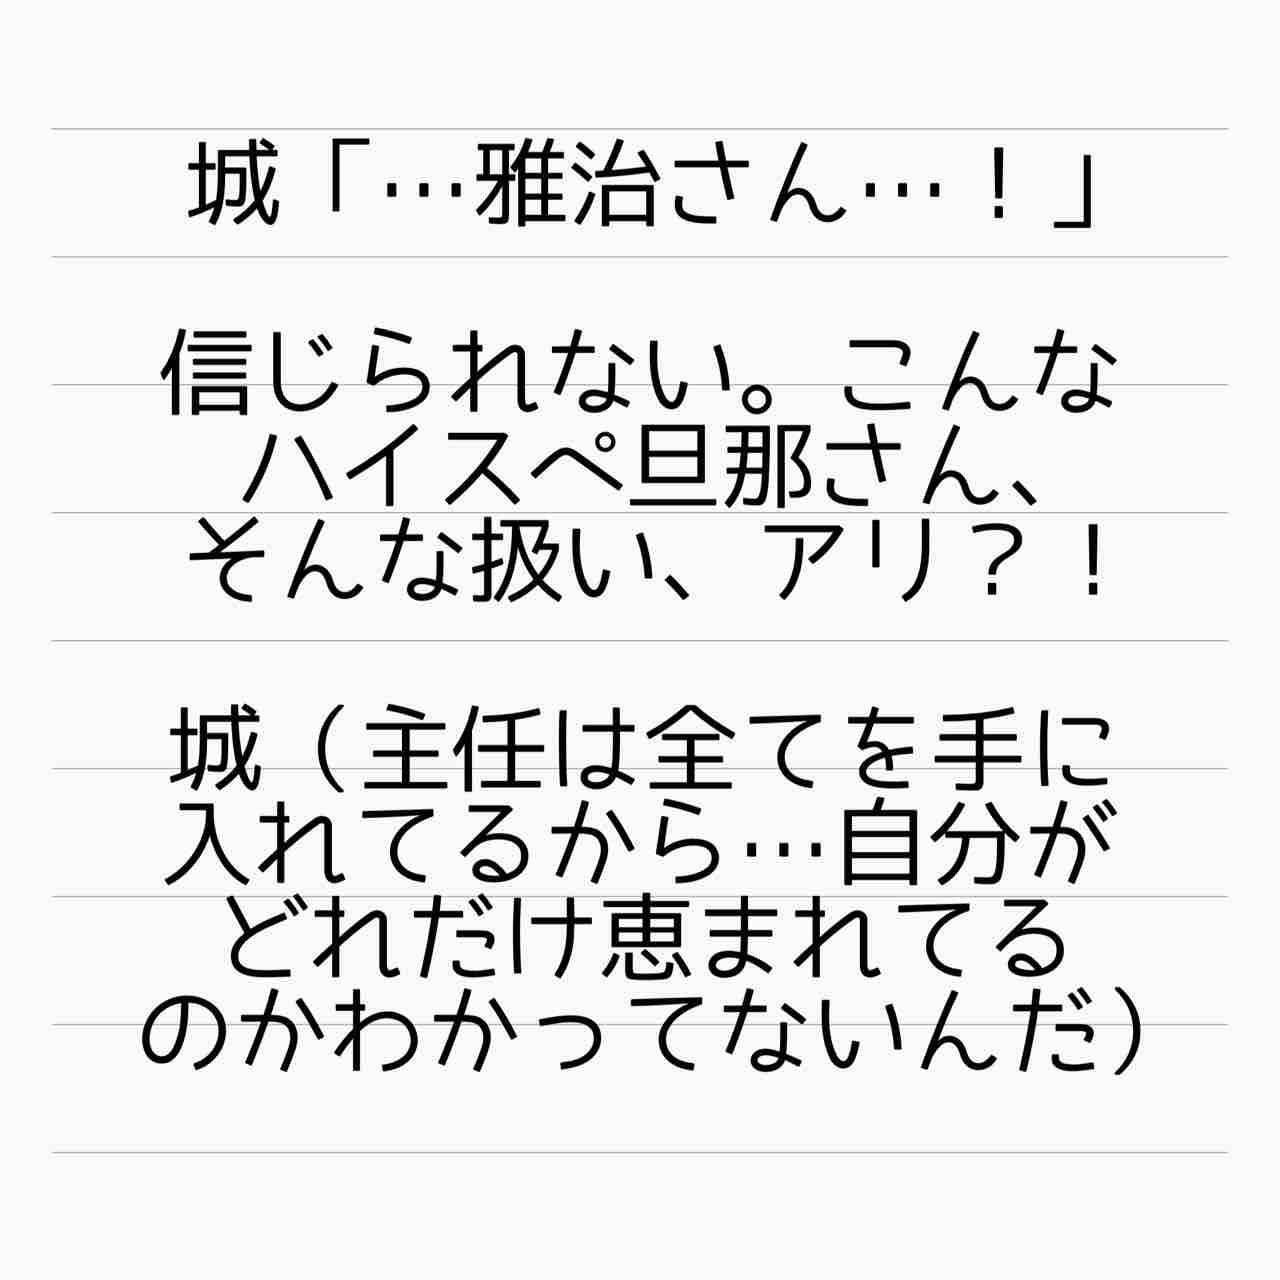 城「…雅治さん…！」
信じられない。こんな
ハイスペ旦那さん、
そんな扱い、アリ？！
城（主任は全てを手に
入れてるから…自分が
どれだけ恵まれてる
のかわかってないんだ）